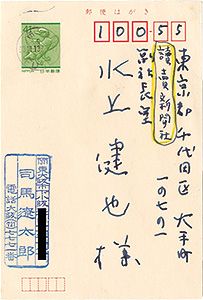 郵便はがき
100-55
東京都千代田区大手町
一の七の一
讀賣新聞社
副社長室
水上健也様
司馬遼太郎